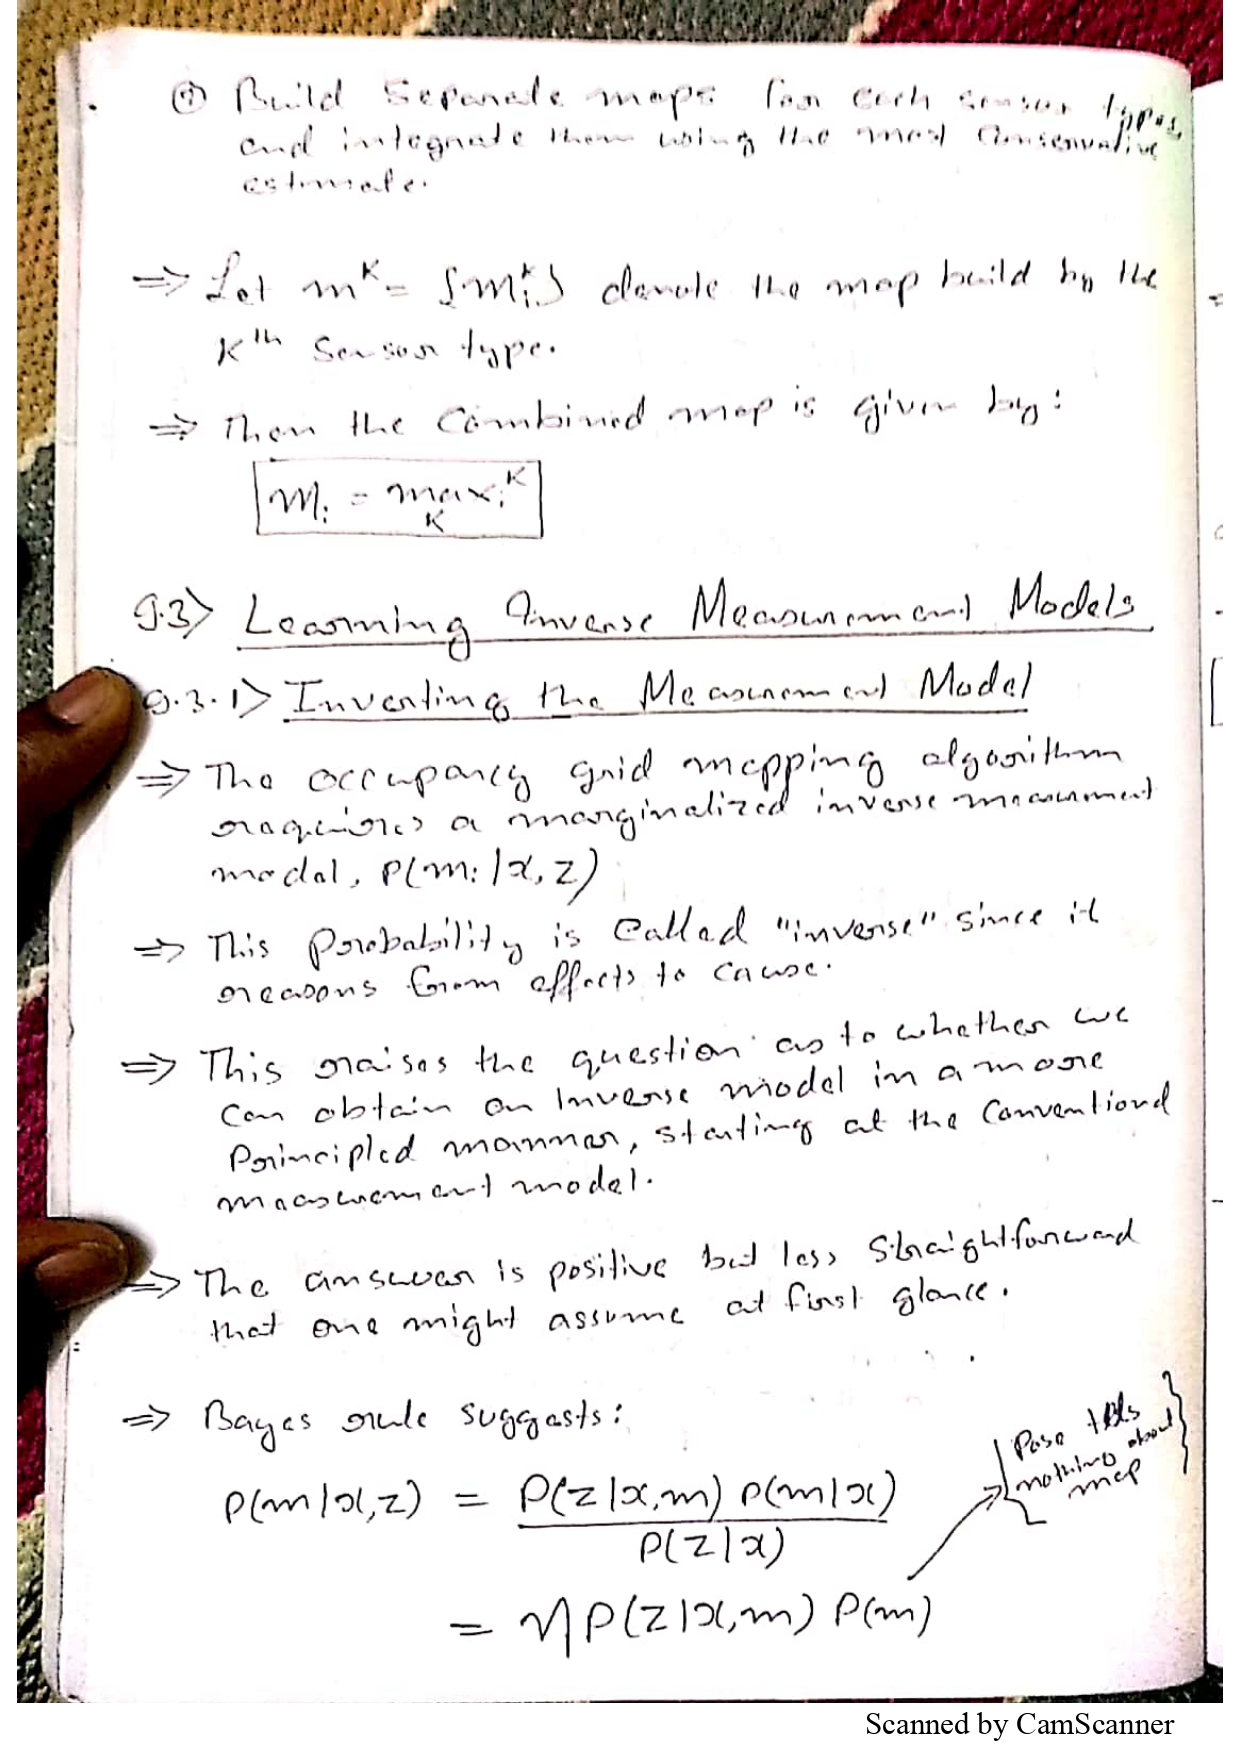 Build Separate maps for each sensor types,
and integrate them using the most Conservative
estimate.
⇒ Let m^k = {m_i^k} denote the map build by the
K^th Sensor type.
⇒ Then the Combined map is given by:
m_i = max_k i^k
9.3> Learning Inverse Measurement Models
9.3.1> Inverting the Measurement Model
⇒ The occupancy grid mapping algorithm
requires a marginalized inverse measurement
model, P(m_i | x, z)
⇒ This Probability is Called "inverse" since it
reasons from effects to cause.
⇒ This raises the question as to whether we
can obtain an Inverse model in a more
Principled manner, starting at the Conventional
measurement model.
⇒ The answer is positive but less straightforward
that one might assume at first glance.
⇒ Bayes rule suggests:
Pose tells
nothing about
map
P(m|x,z) = P(z|x,m) P(m|x)
P(z|x)
= η P(z|x,m) P(m)
Scanned by CamScanner